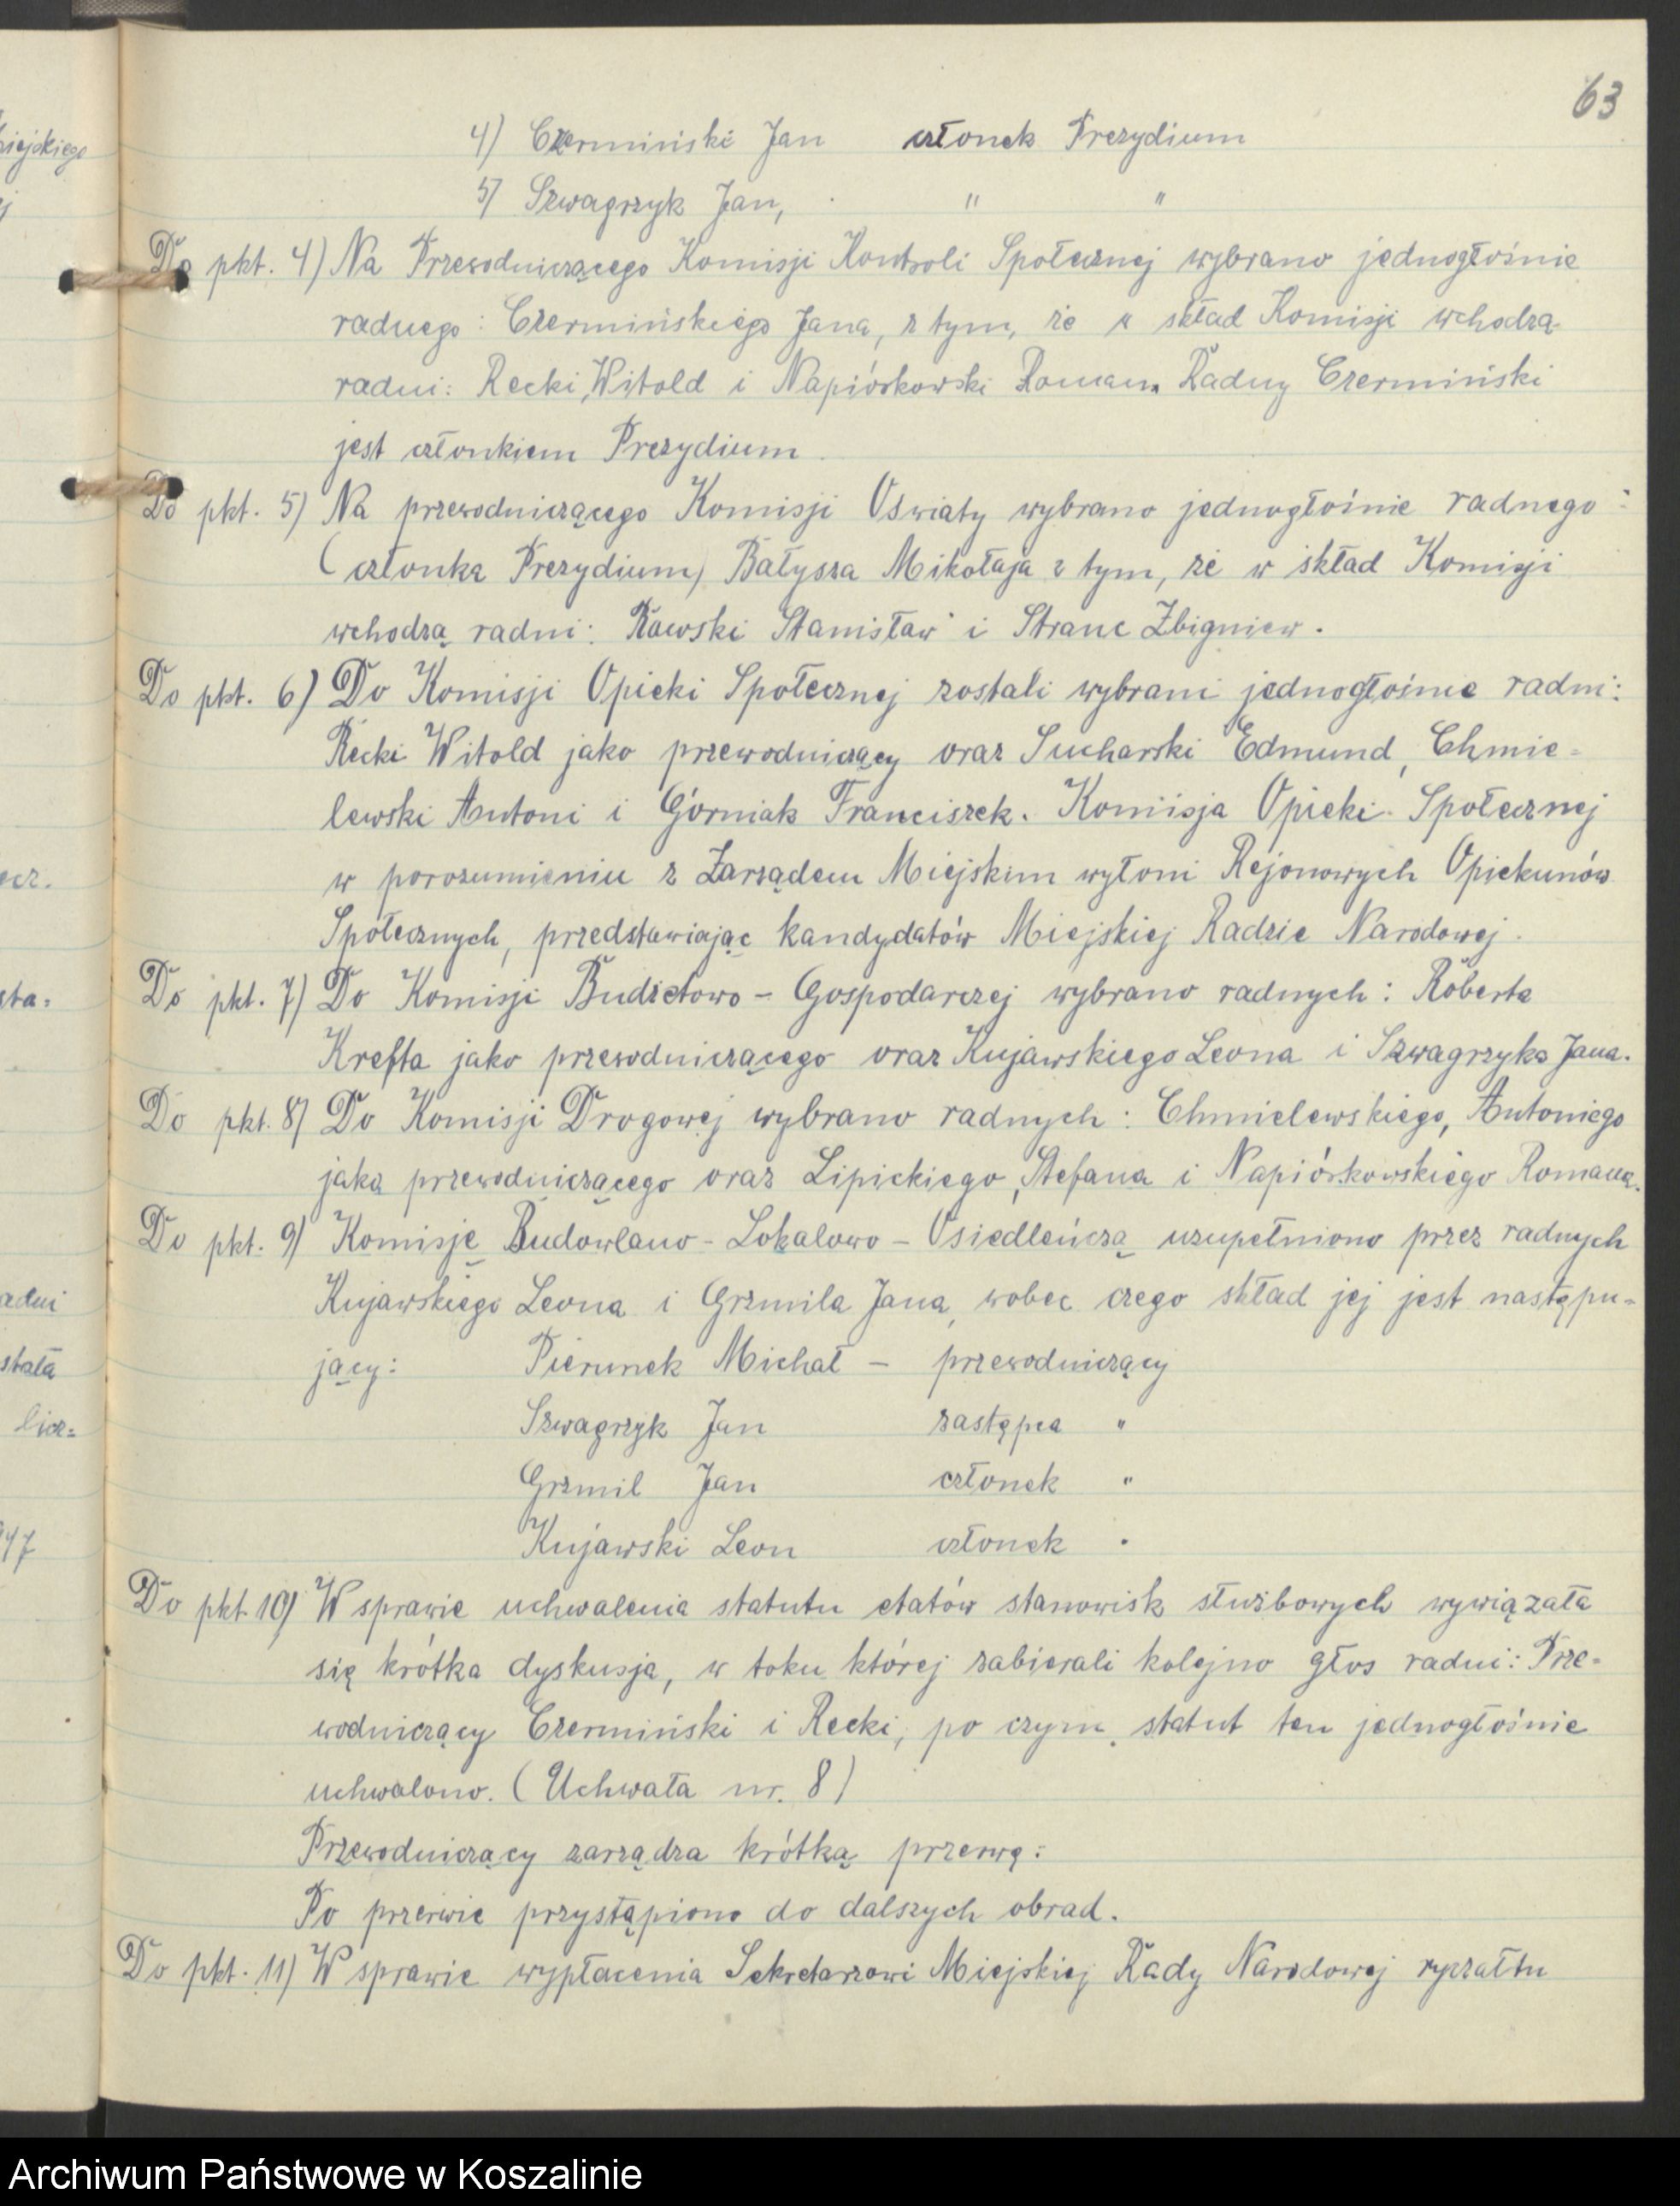 63
4) Czermiński Jan członek Prezydium
5) Szwagrzyk Jan, " "
Do pkt. 4) Na Przewodniczącego Komisji Kontroli Społecznej wybrano jednogłośnie
radnego: Czermińskiego Jana, z tym, że w skład Komisji wchodzą
radni: Recki Witold i Napiórkowski Roman. Radny Czermiński
jest członkiem Prezydium.
Do pkt. 5) Na przewodniczącego Komisji Oświaty wybrano jednogłośnie radnego:
(członka Prezydium) Bałysza Mikołaja z tym, że w skład Komisji
wchodzą radni: Rawski Stanisław i Stranc Zbigniew.
Do pkt. 6) Do Komisji Opieki Społecznej zostali wybrani jednogłośnie radni:
Recki Witold jako przewodniczący oraz Sucharski Edmund, Chmie=
lewski Antoni i Górniak Franciszek. Komisja Opieki Społecznej
w porozumieniu z Zarządem Miejskim wyłoni Rejonowych Opiekunów
Społecznych, przedstawiając kandydatów Miejskiej Radzie Narodowej.
Do pkt. 7) Do Komisji Budżetowo - Gospodarczej wybrano radnych: Roberta
Krefta jako przewodniczącego oraz Kujawskiego Leona i Szwagrzyka Jana.
Do pkt. 8) Do Komisji Drogowej wybrano radnych: Chmielewskiego, Antoniego
jako przewodniczącego oraz Lipickiego, Stefana i Napiórkowskiego Romana.
Do pkt. 9) Komisję Budowlano - Lokalowo - Osiedleńczą uzupełniono przez radnych
Kujawskiego Leona i Grzmila Jana, wobec czego skład jej jest następu=
jący: Pierunek Michał - przewodniczący
Szwagrzyk Jan zastępca "
Grzmil Jan członek "
Kujawski Leon członek "
Do pkt. 10) W sprawie uchwalenia statutu etatów stanowisk służbowych wywiązała
się krótka dyskusja, w toku której zabierali kolejno głos radni: Prze=
wodniczący Czermiński i Recki, po czym statut ten jednogłośnie
uchwalono. (Uchwała nr. 8)
Przewodniczący zarządza krótką przerwę:
Po przerwie przystąpiono do dalszych obrad.
Do pkt. 11) W sprawie wypłacenia Sekretarzowi Miejskiej Rady Narodowej ryczałtu
Archiwum Państwowe w Koszalinie